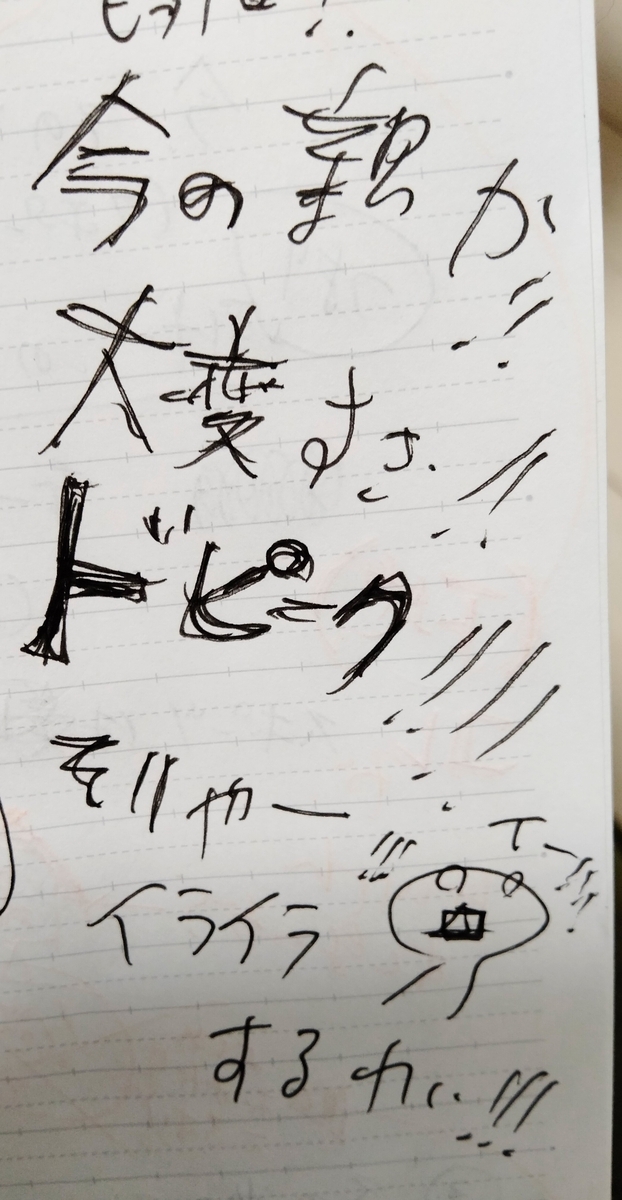 今の が!!
大変すさ.!!
ドピーク!!!!
そりゃー
イライラ
するわ、!!!